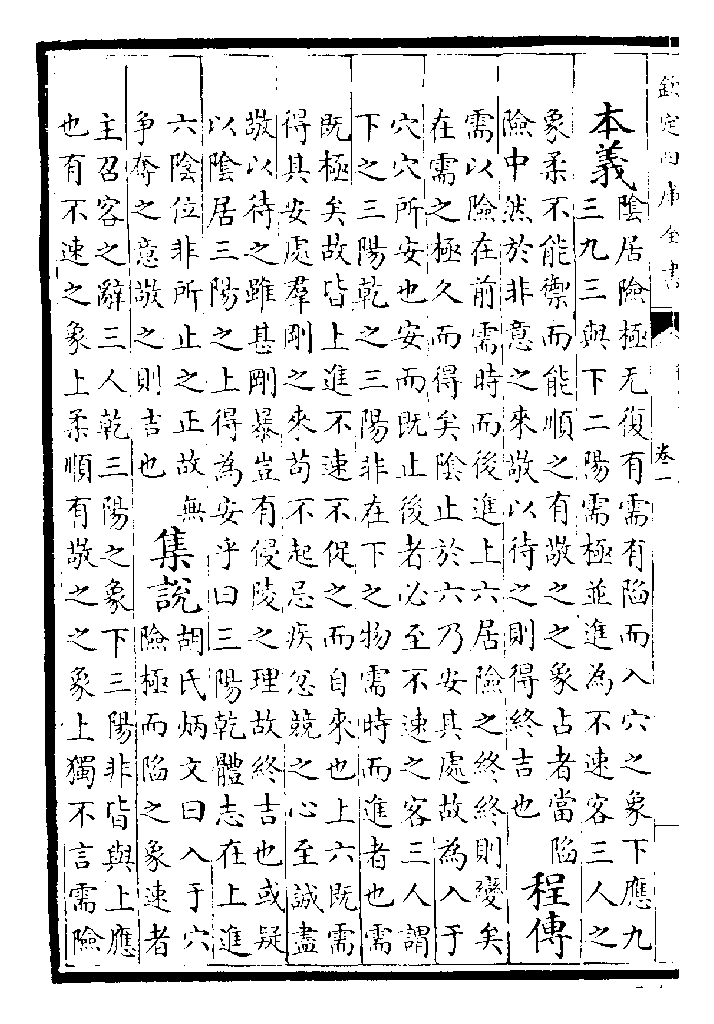 欽定四庫全書
卷一
本義
陰居險極无復有需有陷而入穴之象下應九
三九三與下二陽需極並進為不速客三人之
象柔不能禦而能順之有敬之之象占者當陷
險中然於非意之來敬以待之則得終吉也
程傳
需以險在前需時而後進上六居險之終終則變矣
在需之極久而得矣陰止於六乃安其處故為入于
穴穴所安也安而既止後者必至不速之客三人謂
下之三陽乾之三陽非在下之物需時而進者也需
既極矣故皆上進不速不促之而自來也上六既需
得其安處羣剛之來苟不起忌疾忿競之心至誠盡
敬以待之雖甚剛暴豈有侵陵之理故終吉也或疑
以陰居三陽之上得為安乎曰三陽乾體志在上進
六陰位非所止之正故無
爭奪之意敬之則吉也
集說
胡氏炳文曰入于穴
險極而陷之象速者
主召客之辭三人乾三陽之象下三陽非皆與上應
也有不速之象上柔順有敬之之象上獨不言需險